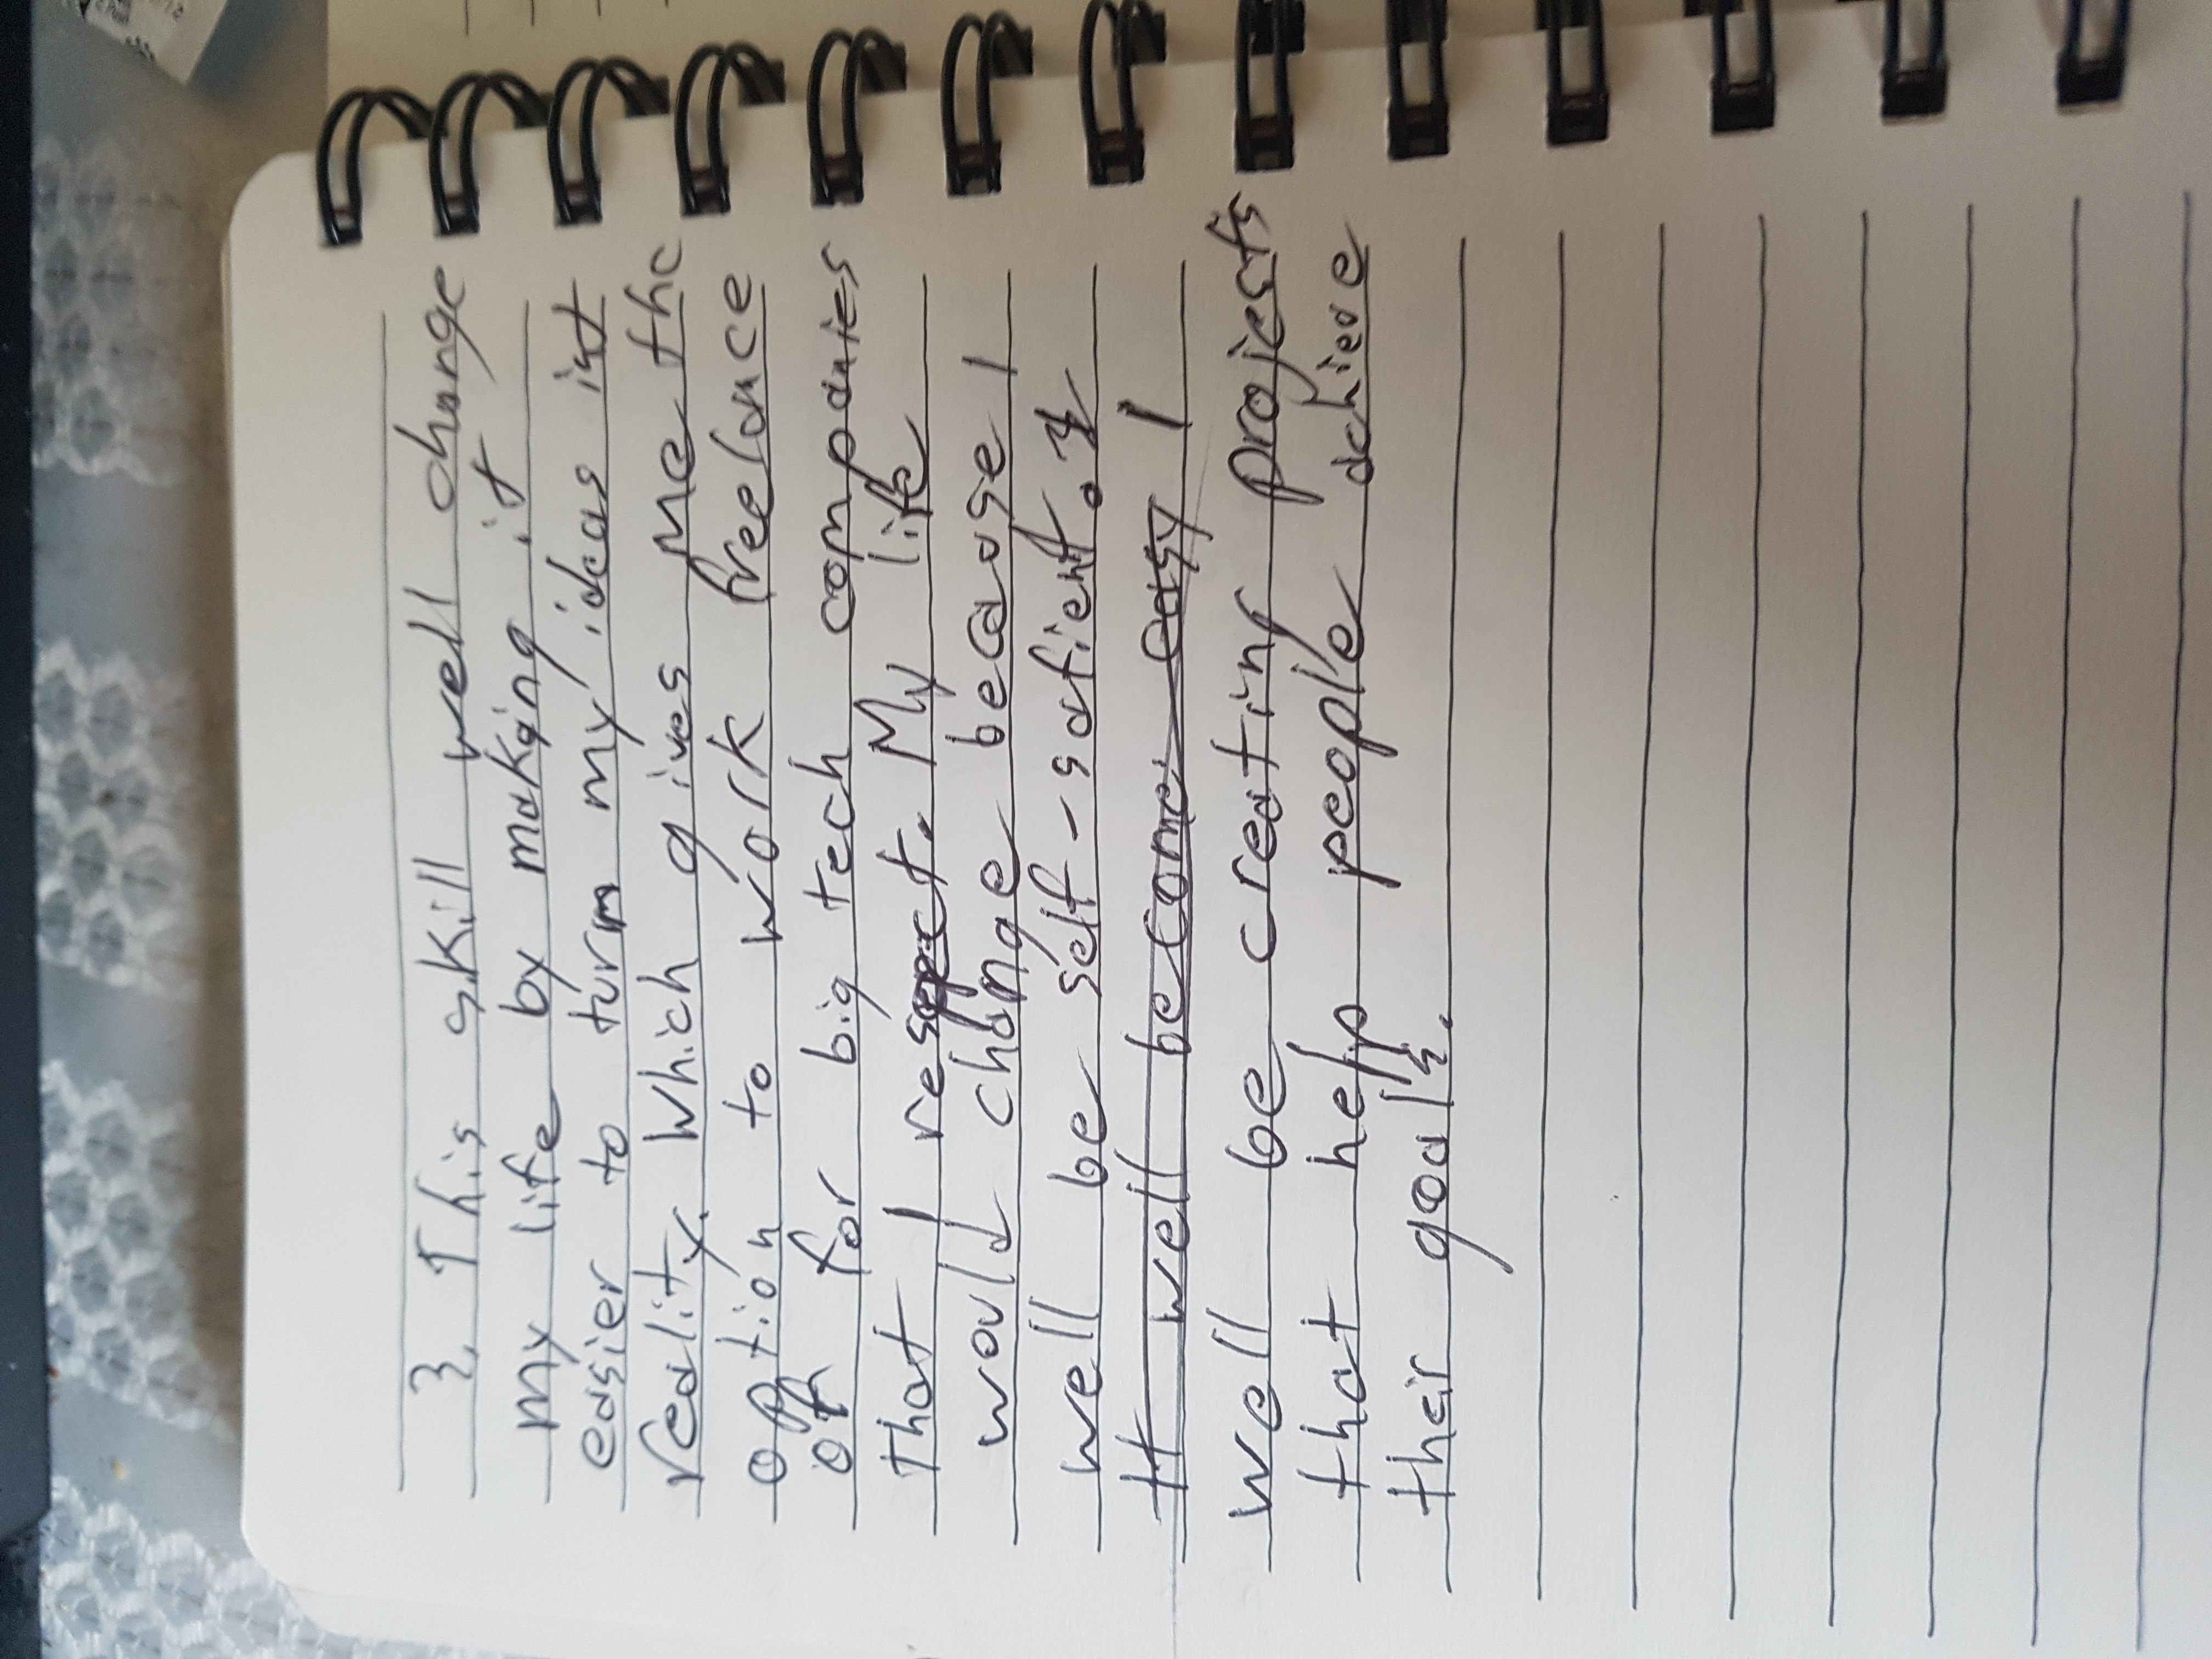 3. This skill well change
my life by making it
easier to turn my ideas int
reality. Which gives me the
option to work freelance
of for big tech companies
that I respect. My life
would change because I
well be self-satient.
It well become easy I
well be creating projects
that help people achieve
their goals.